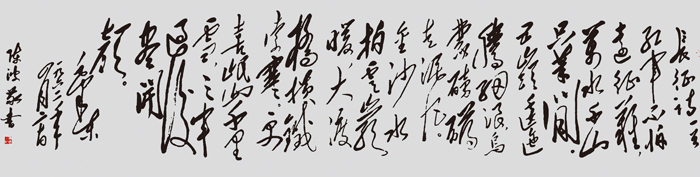 长征诗一首
红军不怕
远征难，
万水千山
只等闲。
五岭逶迤
腾细浪，乌
蒙磅礴
走泥丸。
金沙水
拍云崖
暖，大渡
桥横铁
索寒。更
喜岷山千里
雪，三军
过后
尽开
颜。
毛泽东
一九六二年
书